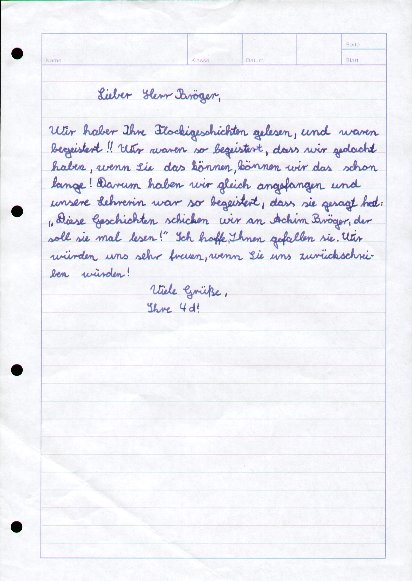 Seite
Name Klasse Datum Blatt
Lieber Herr Bröger,
Wir haben Ihre Flockigeschichten gelesen, und waren
begeistert!! Wir waren so begeistert, dass wir gedacht
haben, wenn Sie das können, können wir das schon
lange! Darum haben wir gleich angefangen und
unsere Lehrerin war so begeistert, dass sie gesagt hat:
„Diese Geschichten schicken wir an Achim Bröger, der
soll sie mal lesen!" Ich hoffe, Ihnen gefallen sie. Wir
würden uns sehr freuen, wenn Sie uns zurückschrei-
ben würden!
Viele Grüße,
Ihre 4d!